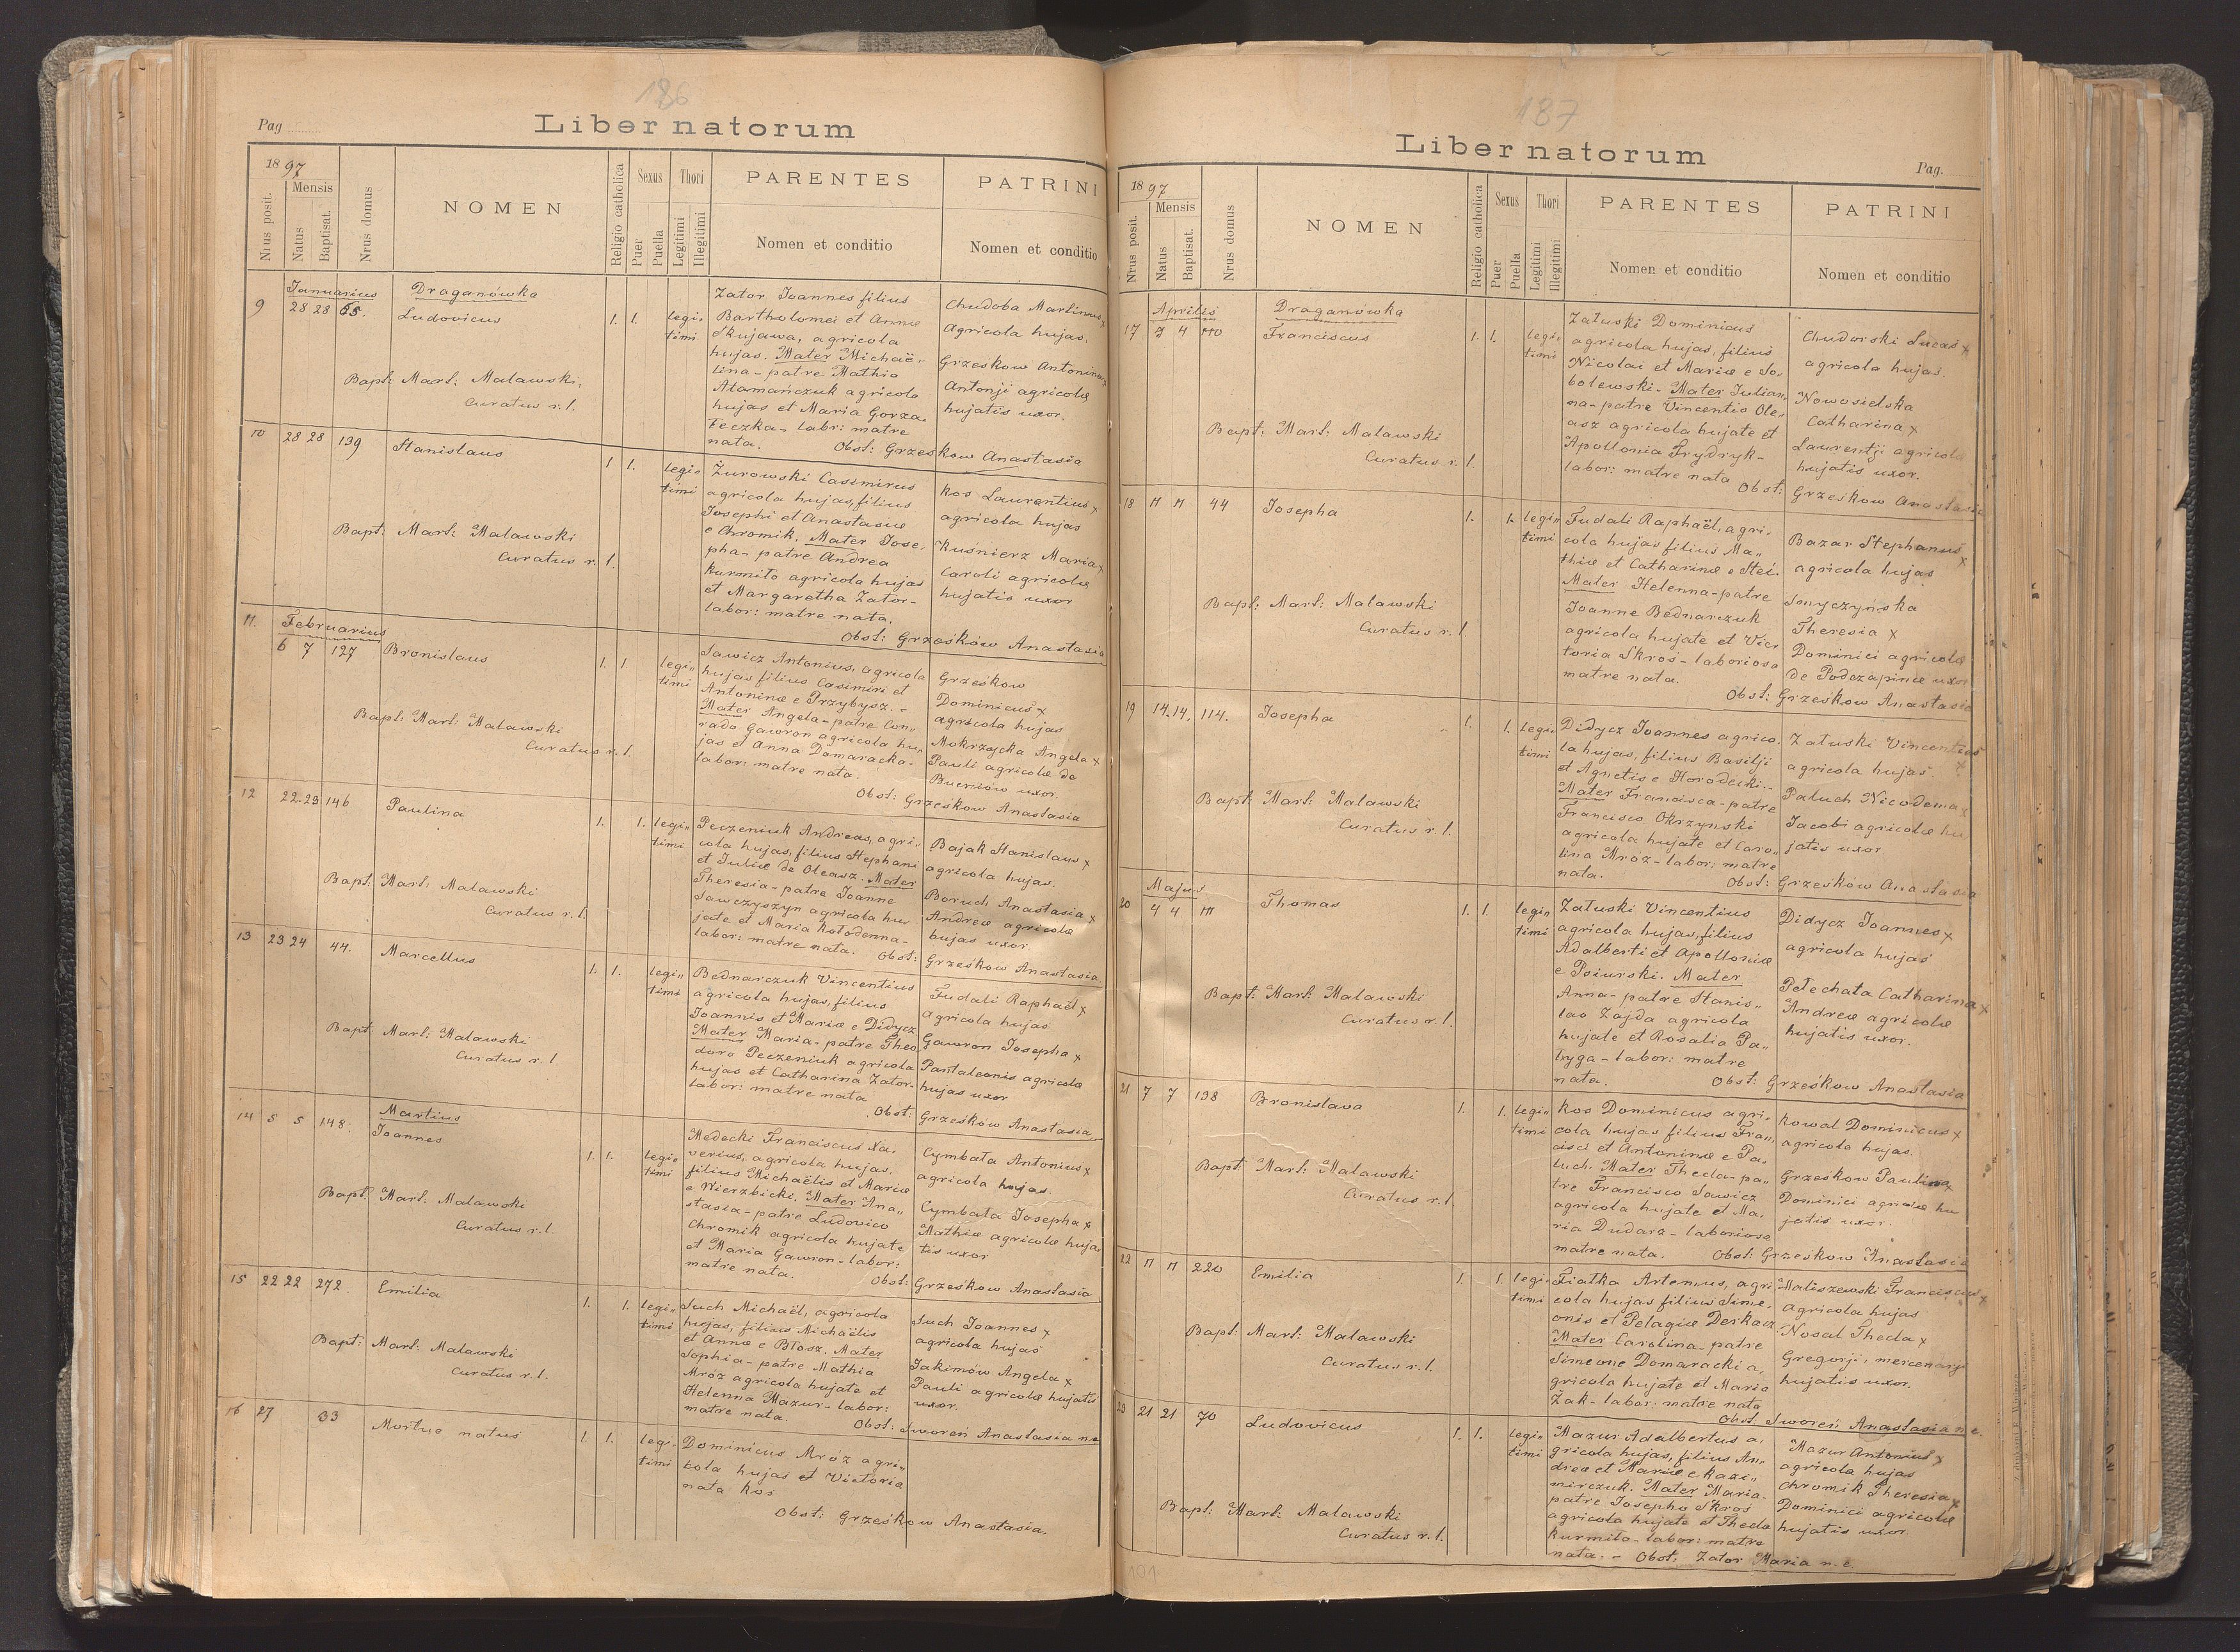 186
Pag
Liber natorum
1897
Nrus posit.
Mensis
Natus
Baptisat.
Nrus domus
NOMEN
Religio catholica
Sexus
Puer
Puella
Thori
Legitimi
Illegitimi
PARENTES
Nomen et conditio
PATRINI
Nomen et conditio
Januarius
Draganówka
9 28 28 65.
Ludovicus
1. 1.
legi-
timi
Zator Joannes filius
Bartholomei et Annæ
Skujawa, agricola
hujas. Mater Michaë-
lina - patre Mathia
Atamańczuk agricola
hujas et Maria Gorza-
Teczka - labr: matre
nata.
Chudoba Martinus x
Agricola hujas.
Grzeskow Antonina x
Antonji agricolæ
hujatis uxor.
Bapt: Mart: Malawski,
Curatus r. l.
Obst: Grzeskow Anastasia
10 28 28 139
Stanislaus
1 1.
legi-
timi
Żurowski Casimirus
agricola hujas, filius
Josephi et Anastasiæ
e Chromik. Mater Jose-
pha - patre Andrea
Kurmiło agricola hujas
et Margaretha Zator-
labor: matre nata.
Kos Laurentius x
agricola hujas
Kuśnierz Maria x
Caroli agricolæ
hujatis uxor
Bapt: Mart: Malawski
Curatus r. l.
Obst: Grześków Anastasia
Februarius
11. 6 7 127
Bronislaus
1. 1.
legi-
timi
Sawicz Antonius, agricola
hujas filius Casimiri et
Antoninæ e Przybysz. -
Mater Angela - patre Con-
rado Gawron agricola hu-
jas et Anna Domaracka -
labor: matre nata.
Grześkow
Dominicus x
agricola hujas
Mokrzycka Angela x
Pauli agricolæ de
Bucniów uxor.
Bapt: Mart: Malawski
Curatus r. l.
Obst: Grześkow Anastasia
12 22. 23 146
Paulina
1. 1.
legi-
timi
Peczeniuk Andreas, agri-
cola hujas, filius Stephani
et Juliæ de Oleasz. Mater
Theresia - patre Joanne
Sawczyszyn agricola hu-
jate et Maria Kołodenna -
labor: matre nata.
Bajak Stanislaus x
agricola hujas.
Boruch Anastasia x
Andreæ agricolæ
hujas uxor
Bapt: Mart: Malawski
Curatus r. l.
Obst: Grześkow Anastasia
13 23 24 44.
Marcellus
1. 1.
legi-
timi
Bednarczuk Vincentius
agricola hujas, filius
Joannis et Mariæ e Didycz
Mater Maria - patre Theo-
doro Peczeniuk agricola
hujas et Catharina Zator-
labor: matre nata
Fudali Raphaël x
agricola hujas.
Gawron Josepha x
Pantaleonis agricolæ
hujas uxor
Bapt: Mart: Malawski
Curatus r. l.
Obst: Grześków Anastasia
Martius
14 5 5 148.
Joannes
1. 1.
legi-
timi
Medecki Franciscus Xa-
verius, agricola hujas,
filius Michaëlis et Mariæ
e Wierzbicki. Mater Ana-
stasia - patre Ludovico
Chromik agricola hujate
et Maria Gawron - labor:
matre nata.
Cymbała Antonius x
agricola hujas.
Cymbała Josepha x
Mathiæ agricolæ huja-
tis uxor
Bapt: Mart: Malawski
Curatus r. l.
Obst: Grześkow Anastasia
15 22 22 272.
Emilia
1. 1.
legi-
timi
Such Michaël, agricola
hujas, filius Michaëlis
et Annæ e Błosz. Mater
Sophia - patre Mathia
Mróz agricola hujate et
Helenna Mazur - labor:
matre nata.
Such Joannes x
agricola hujas
Jakimów Angela x
Pauli agricolæ hujatis
uxor.
Bapt: Mart: Malawski
Curatus r. l.
Obst: Sworeń Anastasia n.e
16 27 33
Mortue natus
1. 1.
legi-
timi
Dominicus Mróz agri-
cola hujas et Victoria
nata Kos
Obst: Grześkow Anastasia.
187
Liber natorum
Pag.
1897
Nrus posit.
Mensis
Natus
Baptisat.
Nrus domus
NOMEN
Religio catholica
Sexus
Puer
Puella
Thori
Legitimi
Illegitimi
PARENTES
Nomen et conditio
PATRINI
Nomen et conditio
Aprilis
Draganówka
17 4 110
Franciscus
1. 1.
legi-
timi
Załuski Dominicus
agricola hujas, filius
Nicolai et Mariæ e So-
bolewski - Mater Julian-
na - patre Vincentio Ole-
asz agricola hujate et
Apollonia Frydryk -
labor: matre nata
Chudorski Lucas x
agricola hujas.
Nowosielska
Catharina x
Laurentji agricolæ
hujatis uxor.
Bapt: Mart: Malawski
Curatus r. l.
Obst: Grześkow Anastasia
18 11 11 44
Josepha
1. 1.
legi-
timi
Fudali Raphaël, agri-
cola hujas filius Ma-
thiæ et Catharinæ e Stei.
Mater Helenna - patre
Joanne Bednarczuk
agricola hujate et Vic-
toria Skroś - laboriosa
matre nata.
Bazar Stephanus x
agricola hujas
Smyczyńska
Theresia x
Dominici agricolæ
de Podczapinæ uxor
Bapt: Mart: Malawski
Curatus r. l.
Obst: Grześkow Anastasia
19 14. 14. 114.
Josepha
1. 1.
legi-
timi
Didycz Joannes agrico-
la hujas, filius Basilji
et Agnetis e Horodecki. -
Mater Francisca - patre
Francisco Okrzynski
agricola hujate et Caro-
lina Mróz - labor: matre
nata.
Załuski Vincentius x
agricola hujas.
Paluch Nicodema x
Jacobi agricolæ hu
jatis uxor
Bapt: Mart: Malawski
Curatus r. l.
Obst: Grześków Anastasia
Majus
20 4 4 111
Thomas
1. 1.
legi-
timi
Załuski Vincentius
agricola hujas, filius
Adalberti et Apolloniæ
e Psiurski. Mater
Anna - patre Stanis-
lao Zajda agricola
hujate et Rosalia Pa-
tyga - labor: matre
nata.
Didycz Joannes x
agricola hujas
Pełechata Catharina x
Andreæ agricolæ
hujatis uxor.
Bapt: Mart: Malawski
Curatus r. l.
Obst: Grześkow Anastasia
21 7 7 138
Bronislava
1. 1.
legi-
timi
Kos Dominicus agri-
cola hujas filius Fran-
cisci et Antoninæ e Pa-
luch. Mater Thecla - pa-
tre Francisco Sawicz
agricola hujate et Ma-
ria Dudarz - laboriosa
matre nata.
Kowal Dominicus x
agricola hujas.
Grześkow Paulina x
Dominici agricolæ hu
jatis uxor.
Bapt: Mart: Malawski
Curatus r. l.
Obst: Grzeskow Anastasia
22 11 11 220
Emilia
1. 1.
legi-
timi
Fiałka Artemius, agri-
cola hujas filius Sime-
onis et Pelagiæ Derkacz
Mater Carolina - patre
Simeone Domaracki a-
gricola hujate et Maria
Żak - labor: matre nata
Maliszewski Franciscus x
agricola hujas
Nosal Thecla x
Gregorji, mercenarji
hujatis uxor.
Bapt: Mart: Malawski
Curatus r. l.
Obst. Sworeń Anastasia n.e.
23 21 21 70
Ludovicus
1. 1.
legi-
timi
Mazur Adalbertus a-
gricola hujas, filius An-
dreæ et Mariæ e Kazi-
mirczuk. Mater Maria -
patre Josepho Skroś
agricola hujate et Thecla
Kurmiło - labor: matre
nata. - Obst: Zator Maria n. e.
Mazur Antonius x
agricola hujas
Chromik Theresia x
Dominici agricolæ
hujatis uxor
Bapt: Mart: Malawski
Curatus r. l.
191